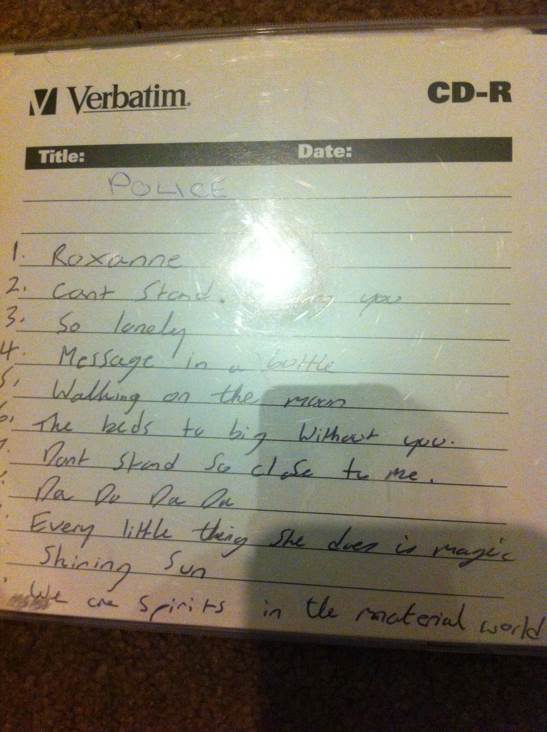 Verbatim.
CD-R
Title:
Date:
POLICE
1. Roxanne
2. Cant Stand. you
3. So lonely
4. Message in a bottle
5. Walking on the moon
6. The beds to big Without you.
7. Dont Stand So close to me.
Da Do Da Da
Every little thing She does is magic
Shining Sun
We are Spirits in the material world